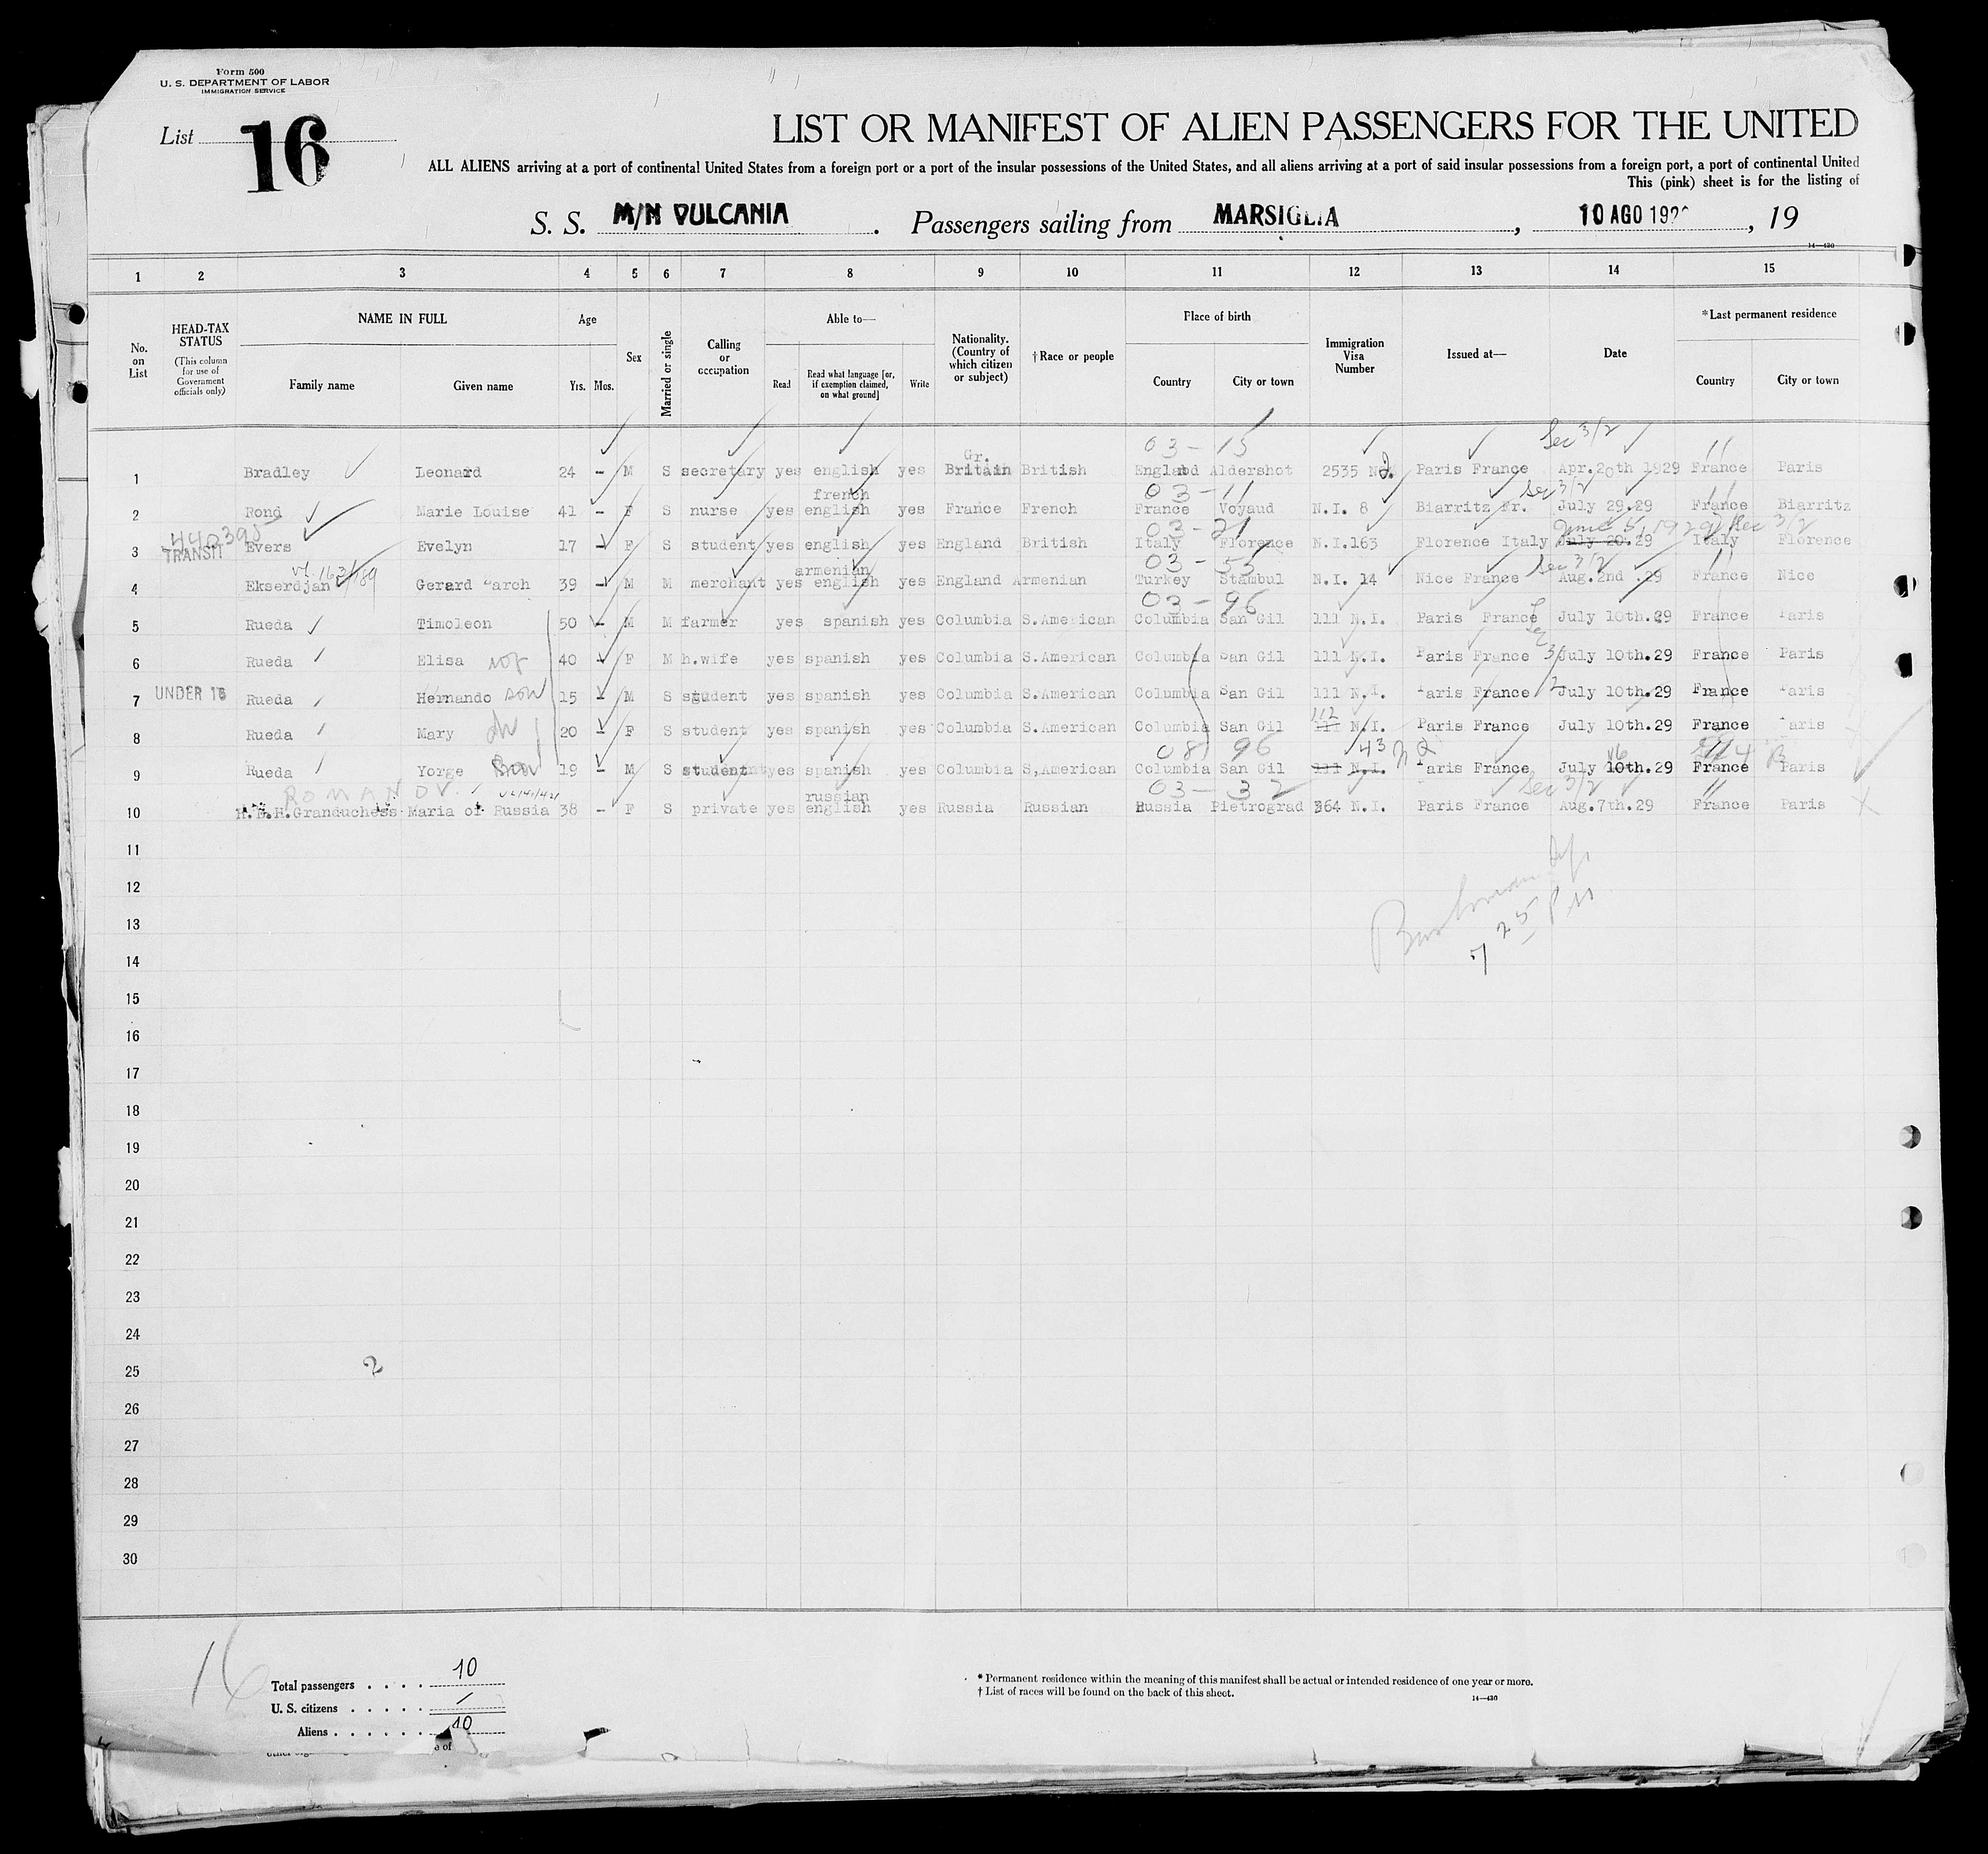 Form 500
U. S. DEPARTMENT OF LABOR
IMMIGRATION SERVICE
List 16
LIST OR MANIFEST OF ALIEN PASSENGERS FOR THE UNITED
ALL ALIENS arriving at a port of continental United States from a foreign port or a port of the insular possessions of the United States, and all aliens arriving at a port of said insular possessions from a foreign port, a port of continental United
This (pink) sheet is for the listing of
S. S. M/N VULCANIA. Passengers sailing from MARSIGLIA, 10 AGO 192, 19
14—430
1 2 3 4 5 6 7 8 9 10 11 12 13 14 15
No. on List
HEAD-TAX STATUS (This column for use of Government officials only)
NAME IN FULL
Family name Given name
Age
Yrs. Mos.
Sex
Married or single
Calling or occupation
Able to—
Read
Read what language [or, if exemption claimed, on what ground]
Write
Nationality. (Country of which citizen or subject)
†Race or people
Place of birth
Country City or town
Immigration Visa Number
Issued at—
Date
*Last permanent residence
Country City or town
Sec 3/2
03 - 15
Gr.
1 Bradley Leonard 24 - M S secretary yes english yes Britain British England Aldershot 2535 Paris France Apr.20th 1929 France Paris
french 03 - 11 Sec 3/2
2 Rond Marie Louise 41 - F S nurse yes english yes France French France Voyaud N.I. 8 Biarritz Fr. July 29.29 France Biarritz
440395 03 - 21 June 5, 1929 Sec 3/2
3 TRANSIT Evers Evelyn 17 - F S student yes english yes England British Italy Florence N.I.163 Florence Italy July 20.29 Italy Florence
armenian 03 - 55 Sec 3/2
4 Ekserdjan Gerard arch 39 - M M merchant yes english yes England Armenian Turkey Stambul N.I. 14 Nice France Aug.2nd .29 France Nice
03 - 96
5 Rueda Timoleon 50 - M M farmer yes spanish yes Columbia S.American Columbia San Gil 111 N.I. Paris France July 10th.29 France Paris
6 Rueda Elisa 40 - F M h.wife yes spanish yes Columbia S.American Columbia San Gil 111 N.I. Paris France July 10th.29 France Paris
7 UNDER 16 Rueda Hernando son 15 - M S student yes spanish yes Columbia S.American Columbia San Gil 111 N.I. Paris France July 10th.29 France Paris
112
8 Rueda Mary 20 - F S student yes spanish yes Columbia S.American Columbia San Gil 111 N.I. Paris France July 10th.29 France Paris
08 96 43 16
9 Rueda Yorge Son 19 - M S student yes spanish yes Columbia S,American Columbia San Gil 111 N.I. Paris France July 10th.29 France Paris
ROMANOV. russian 03 - 32 Sec 3/2
10 H.H.Granduchess Maria of Russia 38 - F S private yes english yes Russia Russian Russia Pietrograd 364 N.I. Paris France Aug.7th.29 France Paris
11
12
13
7 25 PM
14
15
16
17
18
19
20
21
22
23
24
2
25
26
27
28
29
30
16
Total passengers . . . . 10
U. S. citizens . . . . . /
Aliens . . . . . . 10
* Permanent residence within the meaning of this manifest shall be actual or intended residence of one year or more.
† List of races will be found on the back of this sheet.
14—430